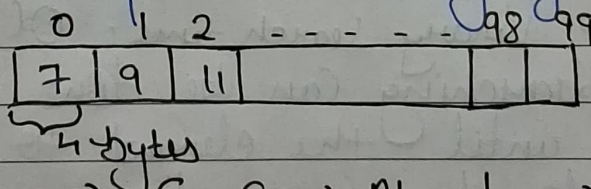 0 1 2 - - - - - 98 99
7 9 11
4 bytes